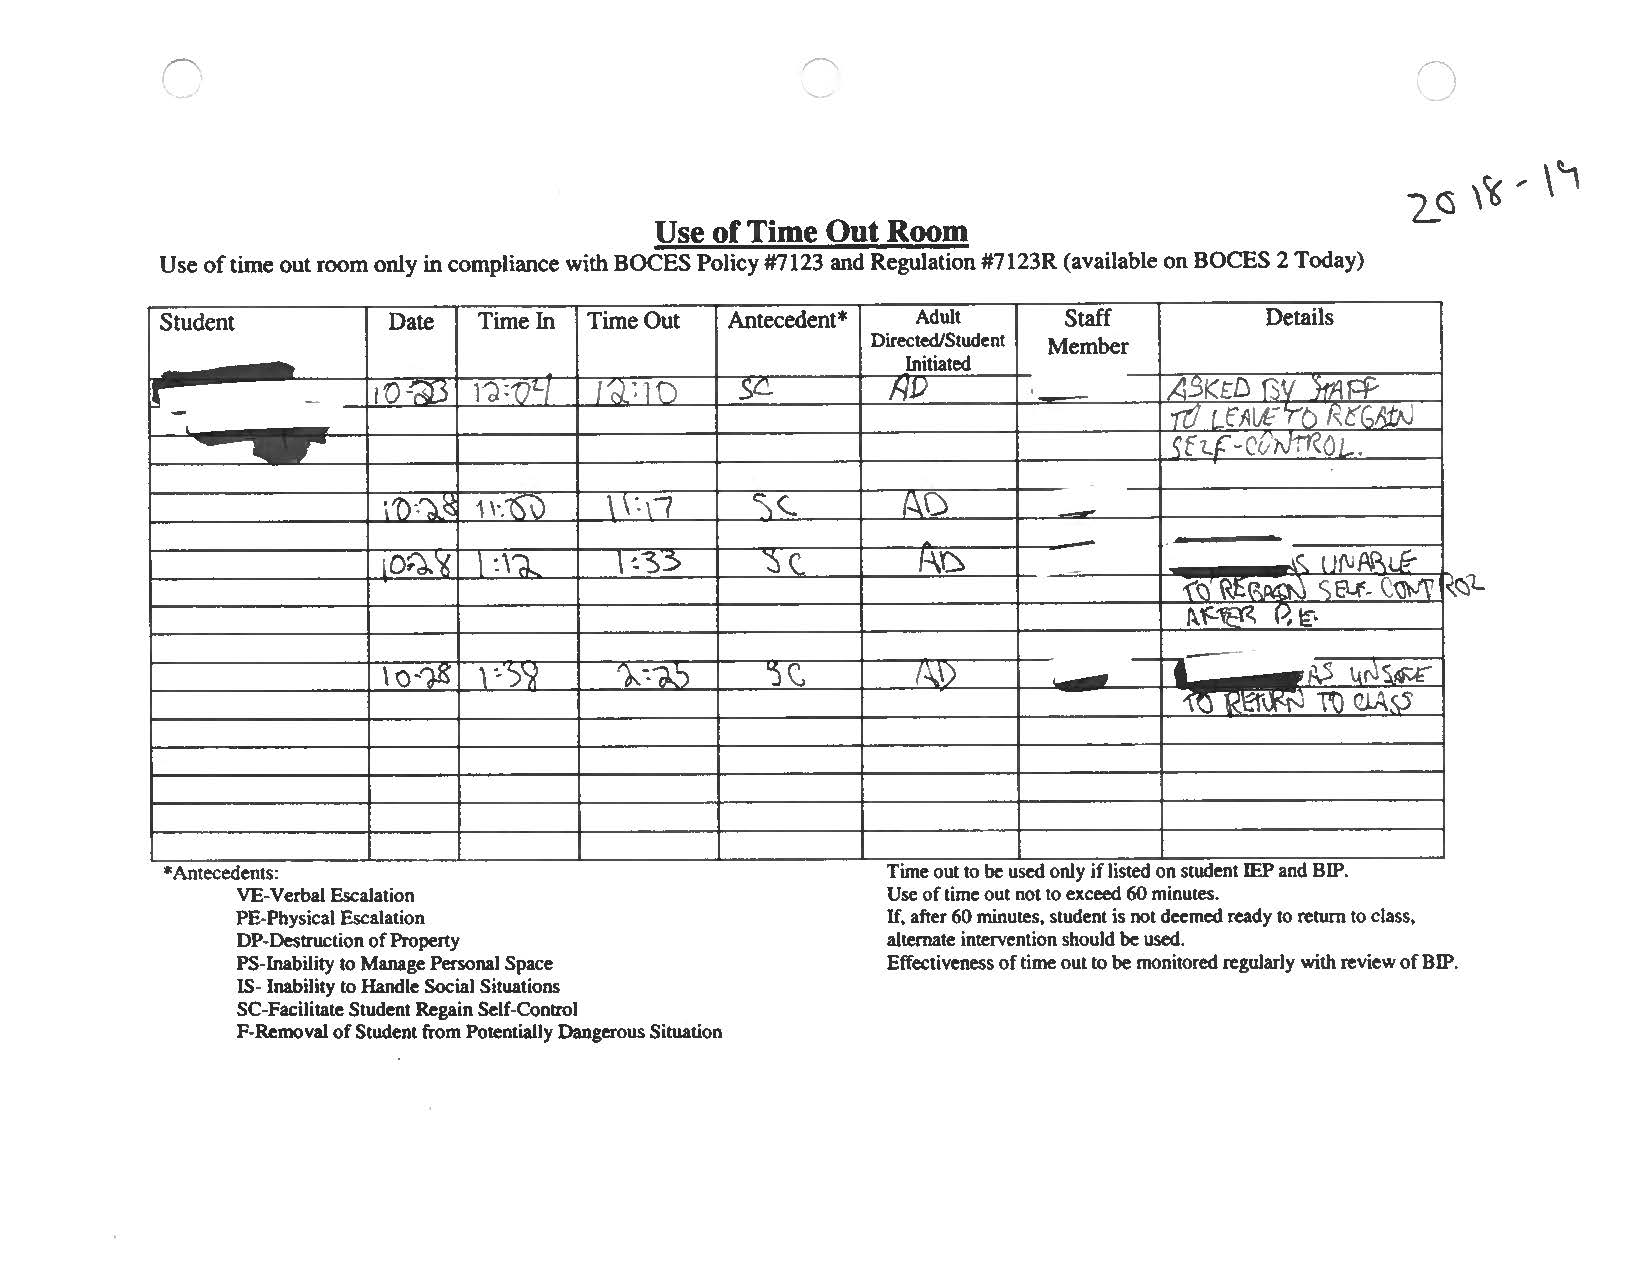 2018-19
Use of Time Out Room
Use of time out room only in compliance with BOCES Policy #7123 and Regulation #7123R (available on BOCES 2 Today)
Student Date Time In Time Out Antecedent* Adult Directed/Student Initiated Staff Member Details
10-23 12:04 12:10 SC AD ASKED BY STAFF
TO LEAVE TO REGAIN
SELF-CONTROL.
10-28 11:00 11:17 SC AD
10-28 1:12 1:33 SC AD IS UNABLE
TO REGAIN SELF-CONTROL
AFTER P.E.
10-28 1:38 2:25 SC AD AS UNSAFE
TO RETURN TO CLASS
*Antecedents:
VE-Verbal Escalation
PE-Physical Escalation
DP-Destruction of Property
PS-Inability to Manage Personal Space
IS- Inability to Handle Social Situations
SC-Facilitate Student Regain Self-Control
F-Removal of Student from Potentially Dangerous Situation
Time out to be used only if listed on student IEP and BIP.
Use of time out not to exceed 60 minutes.
If, after 60 minutes, student is not deemed ready to return to class,
alternate intervention should be used.
Effectiveness of time out to be monitored regularly with review of BIP.